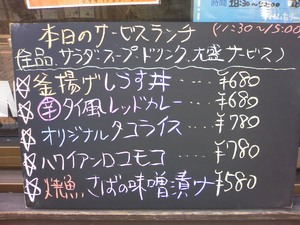 本日のサービスランチ
(11:30〜15:00)
(全品、サラダ・スープ・ドリンク、大盛サービス)
☆釜揚げしらす丼‥‥¥680
☆辛タイ風レッドカレー‥‥¥680
☆オリジナルタコライス‥‥¥780
☆ハワイアンロコモコ‥‥¥780
☆焼魚 さばの味噌漬け ¥580
時間